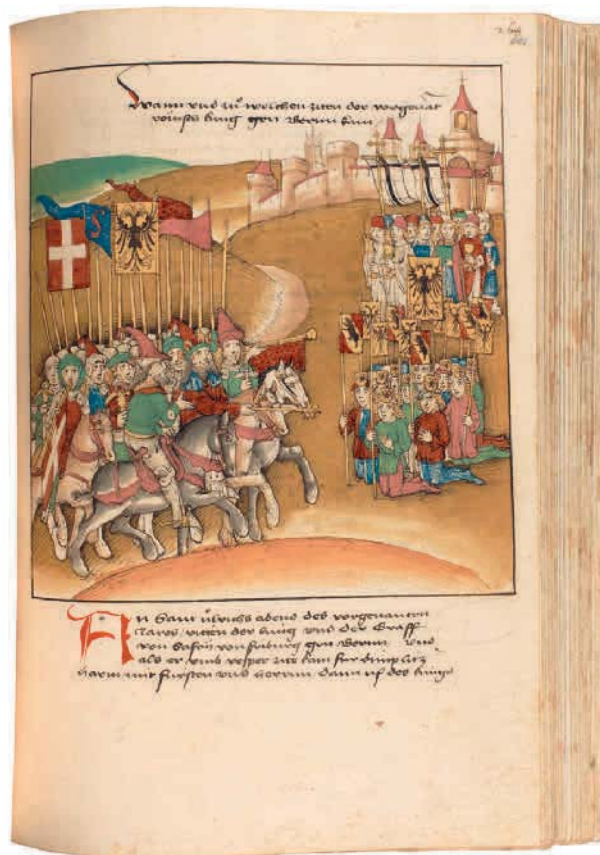 Wann vnd zů welchen ziten der vorgenāt
römsch kung gen Bernn kam
An Sant ůlrichs abend des vorgenanten
Jares ritten der kung vnd der Graff
von Safoy von friburg gen Bernn vnd
als er vmb vesper zitt kam für
harin mit fürsten vnd herren dann uf des kungs